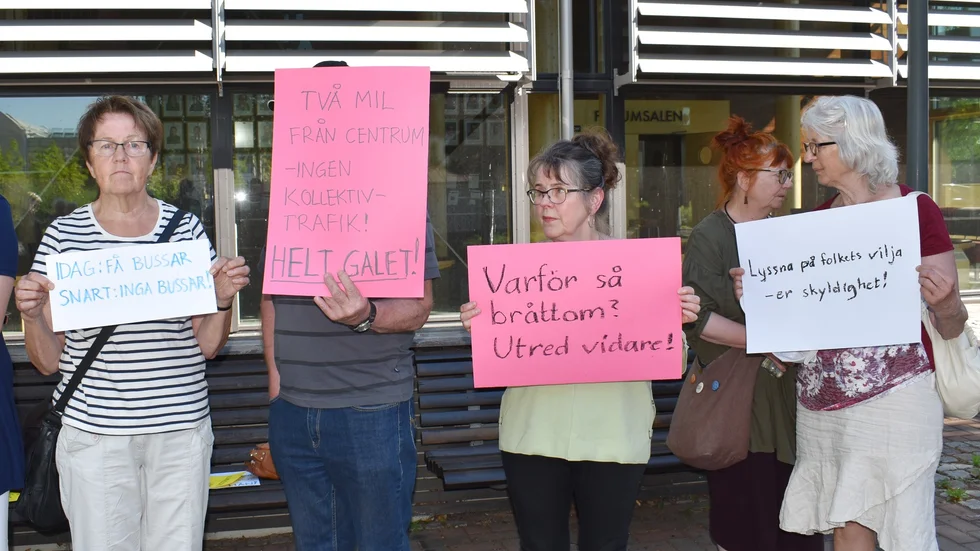 IDAG: FÅ BUSSAR
SNART: INGA BUSSAR!
TVÅ MIL
FRÅN CENTRUM
-INGEN
KOLLEKTIV-
TRAFIK!
HELT GALET!
Varför så
bråttom?
Utred vidare!
UMSALEN
Lyssna på folkets vilja
-er skyldighet!